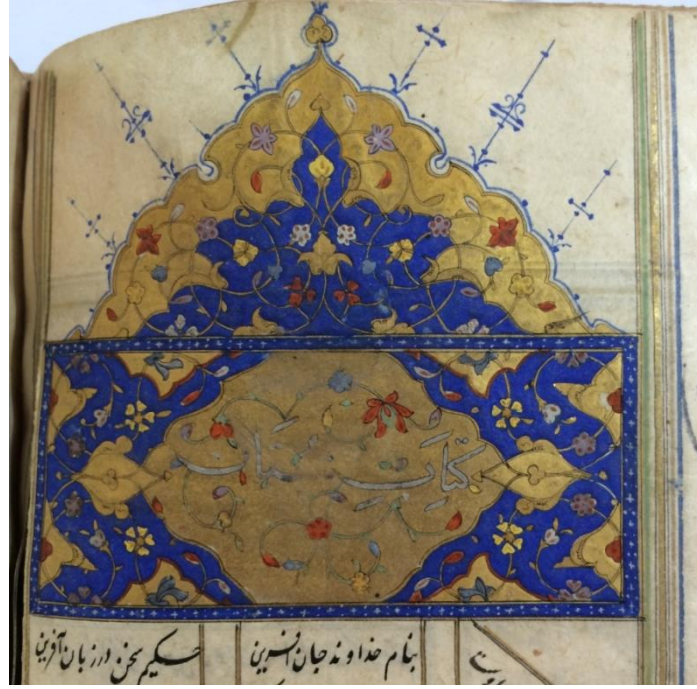 کتاب بستان
بنام خداوند جان آفرین حکیم سخن در زبان آفرین